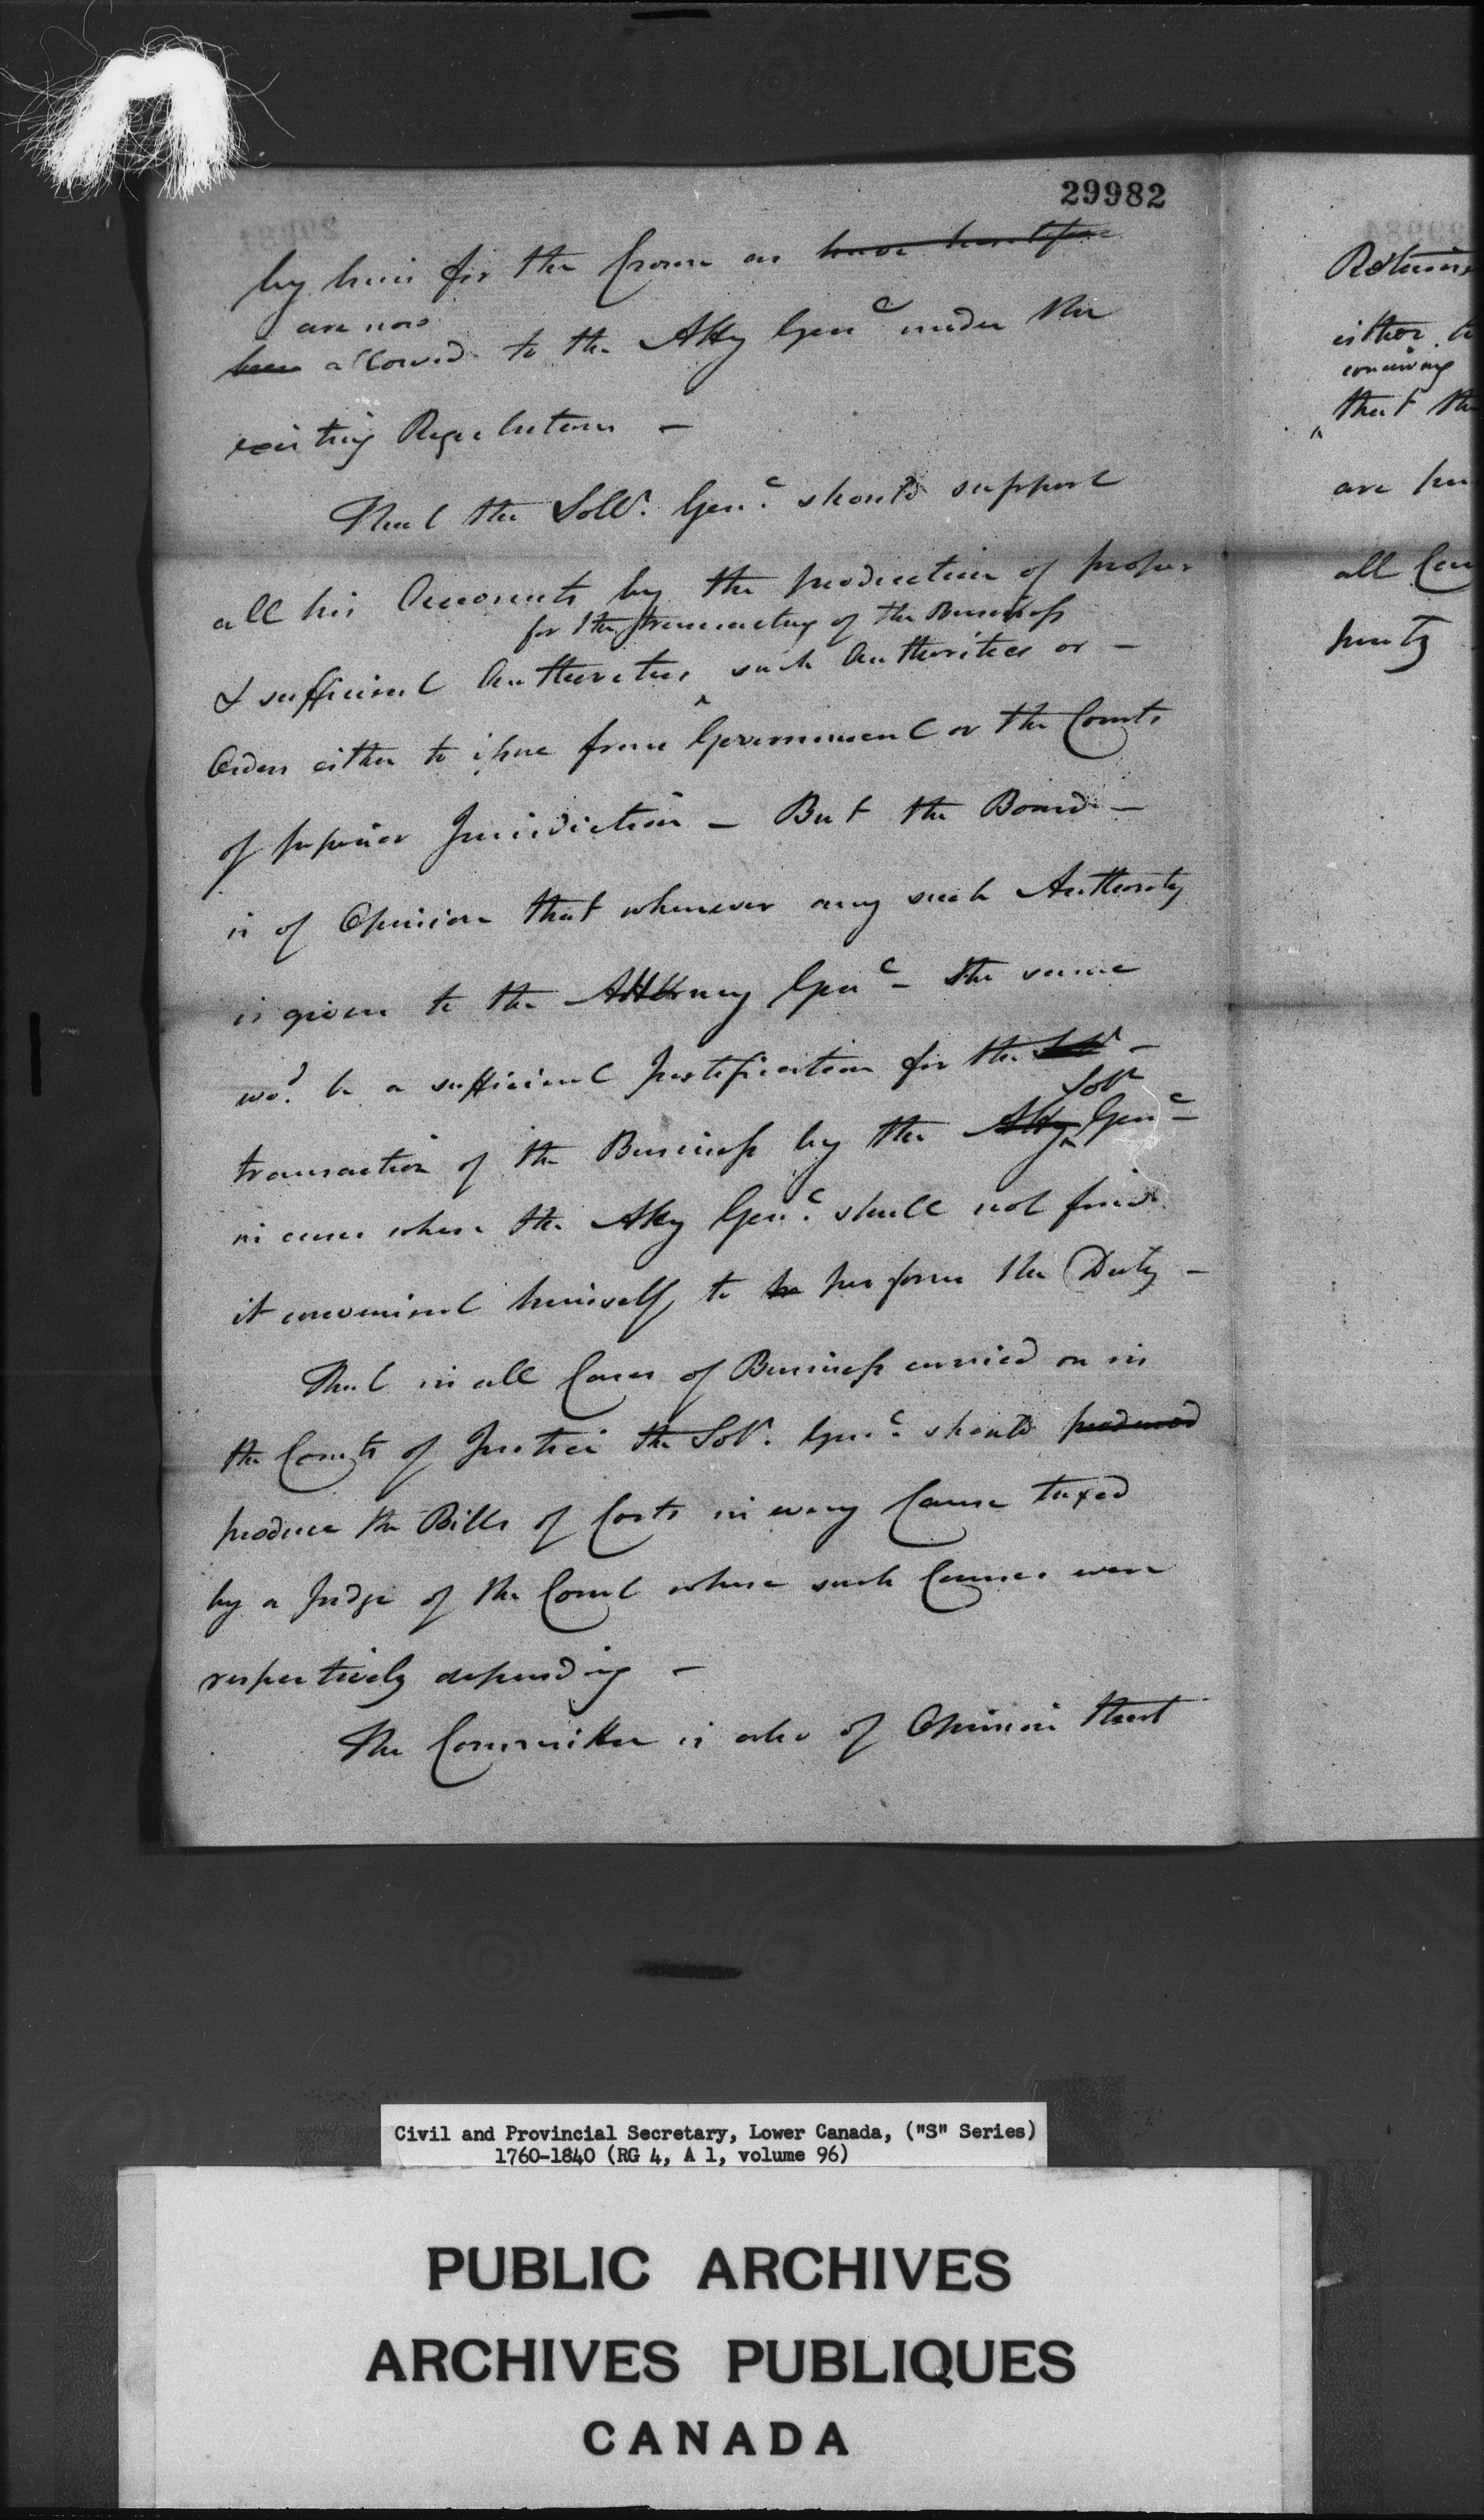 29982
by him for the Crown as have heretofore
are now
been allowed to the Atty Genl under the
existing Regulations —
That the Sollr. Genl. should support
all his Accounts by the production of proper
for the transacting of the Business
& sufficient Authorities, such Authorities or —
Orders either to issue from Government or the Courts
of superior Jurisdiction — But the Board —
is of Opinion that whenever any such Authority
is given to the Attorney Genl — the same
wod. be a sufficient Justification for the —
Solr
transaction of the Business by the Atty Genl —
in cases where the Atty Genl. shall not find
it convenient himself to perform the Duty —
That in all Cases of Business carried on in
the Courts of Justice the Solr. Genl. should produced
produce the Bills of Costs in every Cause taxed
by a Judge of the Court where such Causes were
respectively depending —
The Committee is also of Opinion that
either
that
are
all
Civil and Provincial Secretary, Lower Canada, ("S" Series)
1760-1840 (RG 4, A 1, volume 96)
PUBLIC ARCHIVES
ARCHIVES PUBLIQUES
CANADA